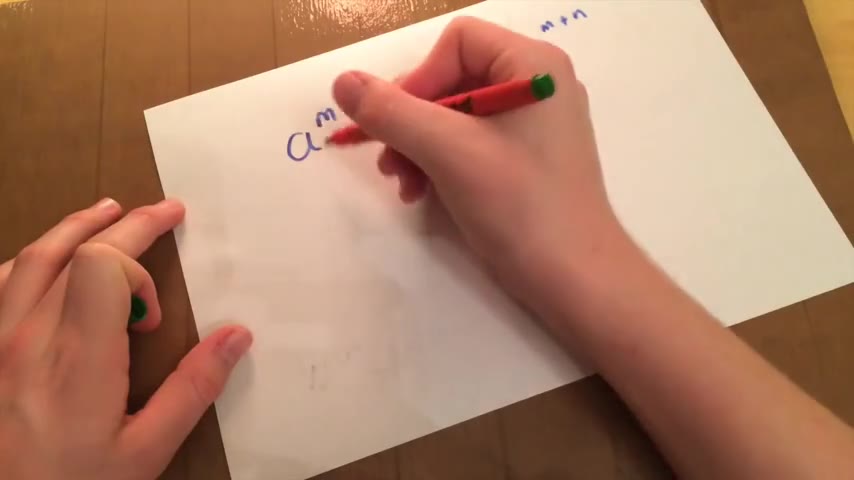 a^m m+n